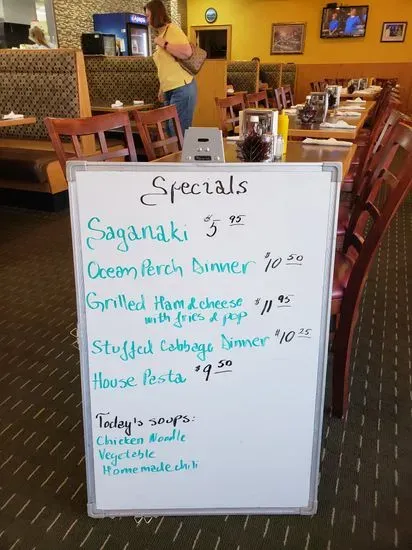 Specials
Saganaki $5 95
Ocean Perch Dinner $10 50
Grilled Ham & cheese $11 95
with fries & pop
Stuffed Cabbage Dinner $10 25
House Pasta $9 50
Today's soups:
Chicken Noodle
Vegetable
Homemade chili